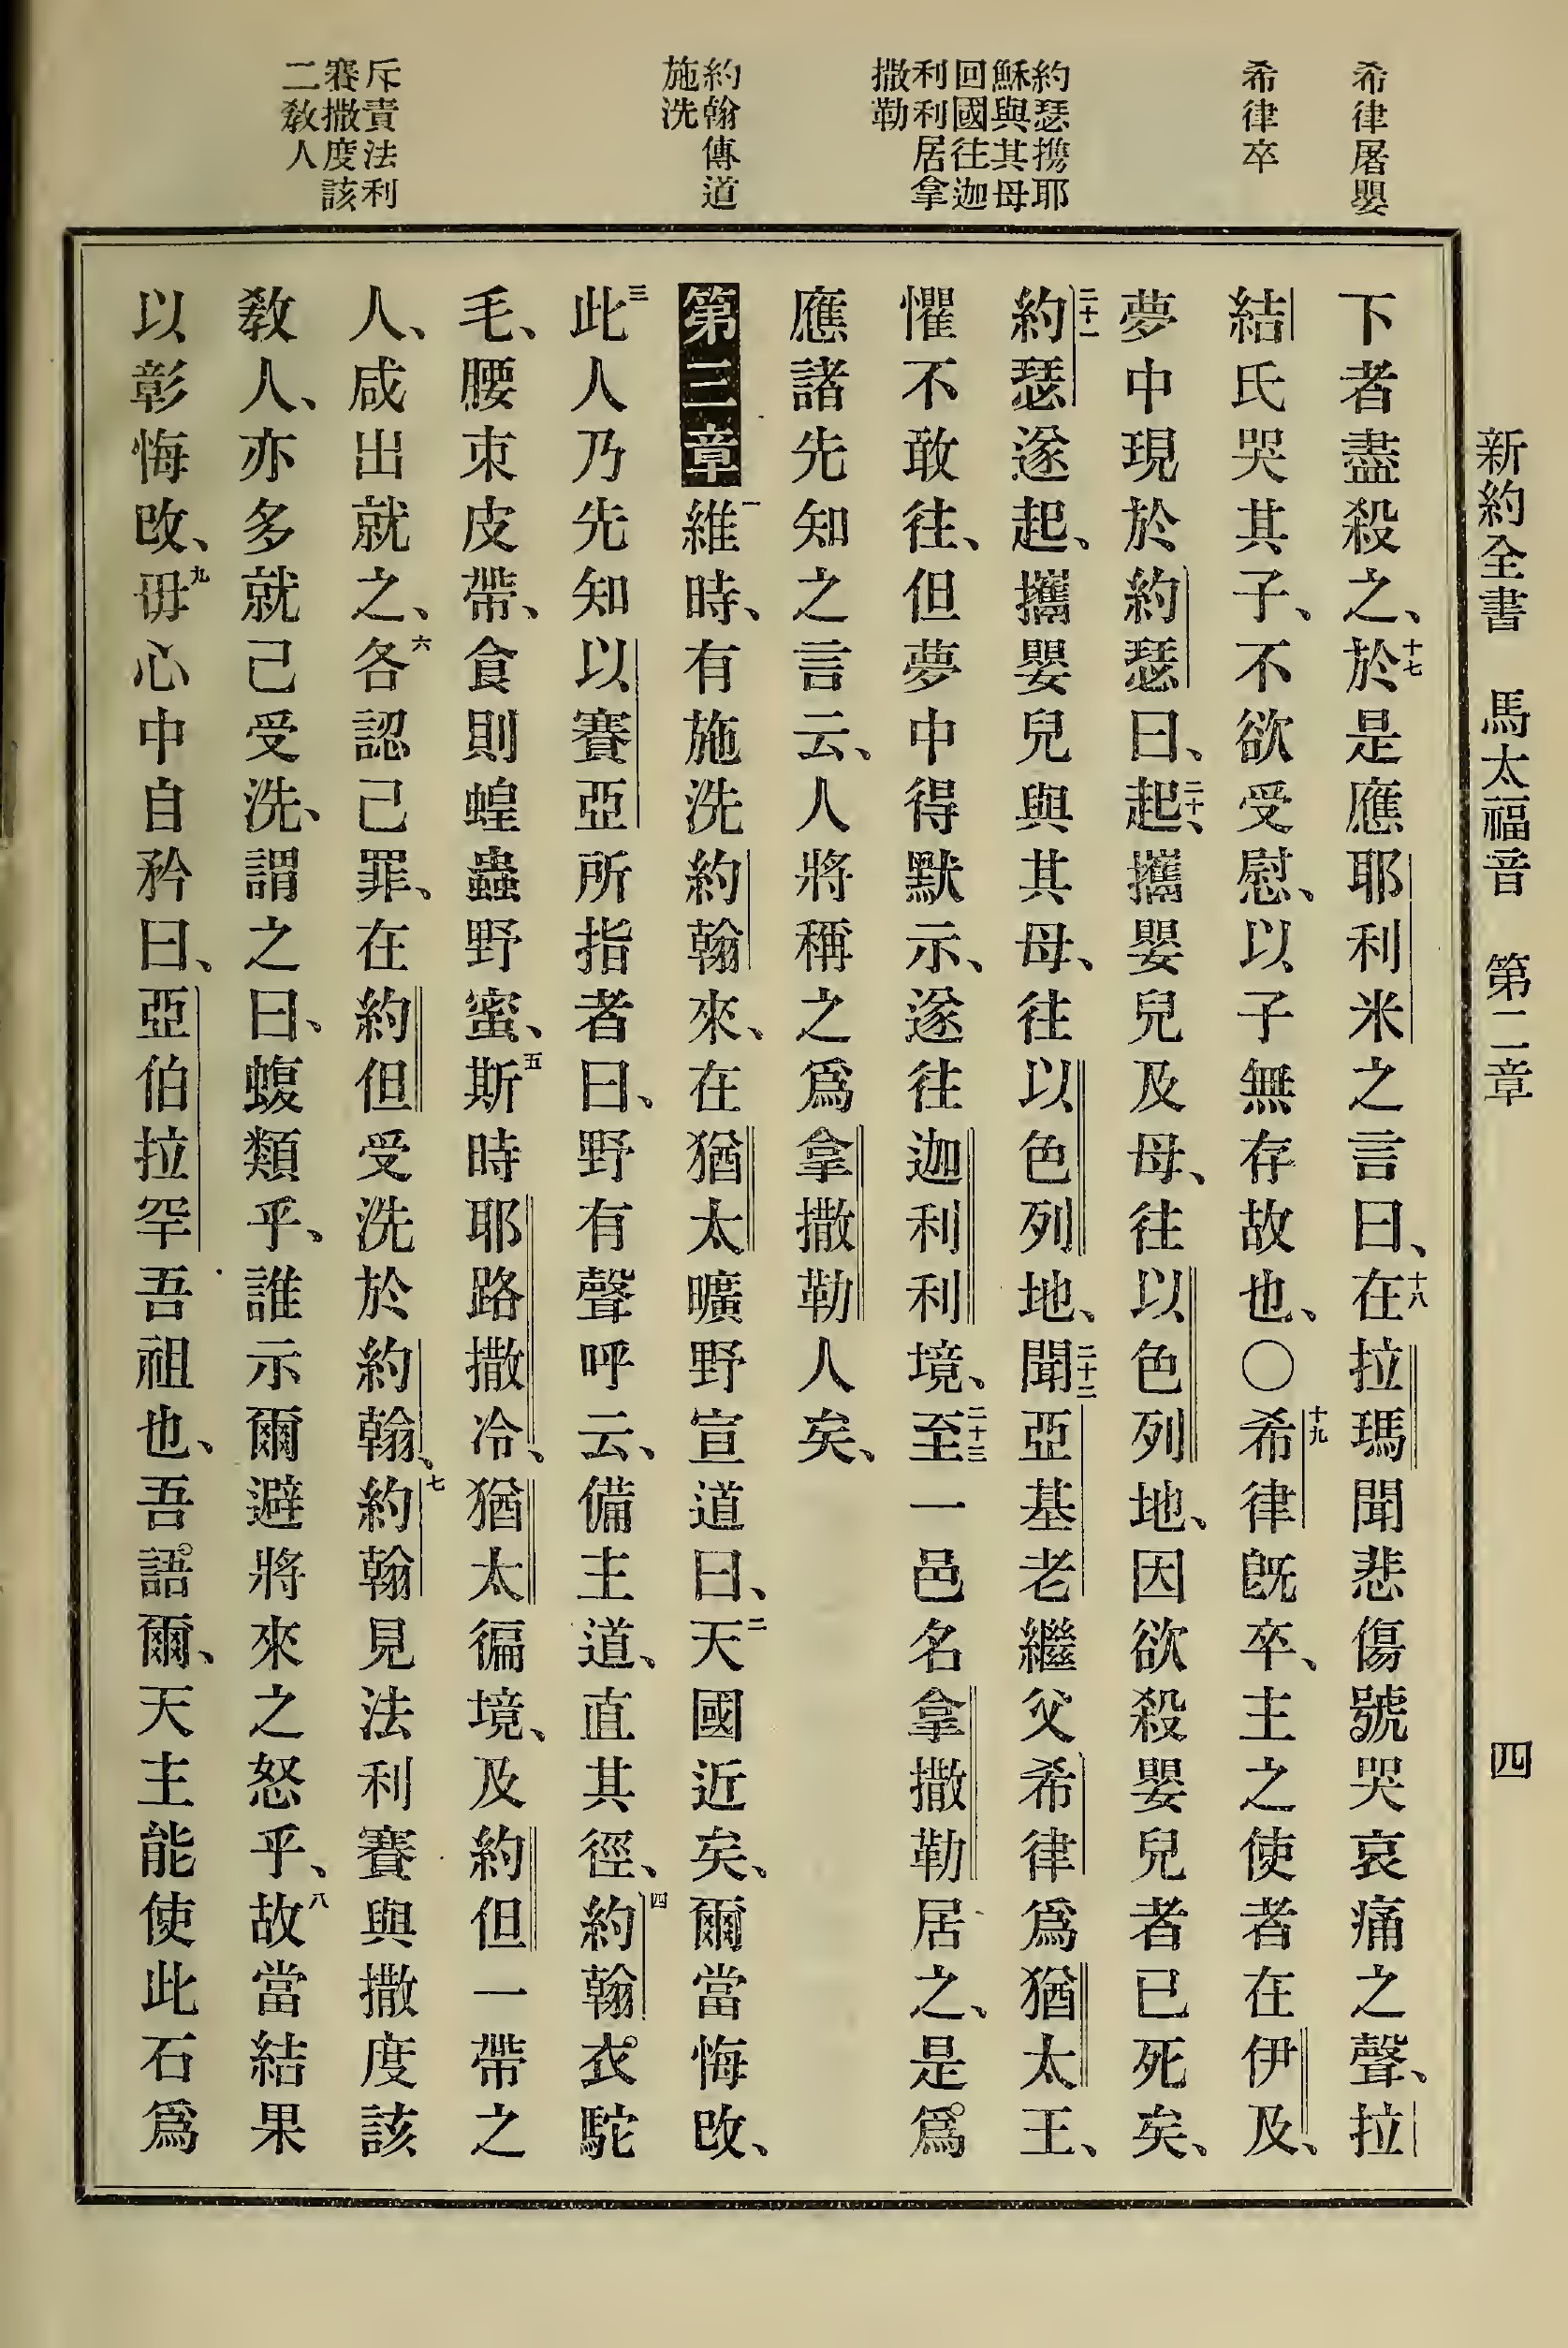 新約全書 馬太福音 第二章 四
希律屠嬰
希律卒
約瑟携耶
穌與其母
回國往迦
利利居拿
撒勒
約翰傳道
施洗
斥責法利
賽撒度該
二敎人
下者盡殺之、十七於是應耶利米之言曰、十八在拉瑪聞悲傷號哭哀痛之聲、拉
結氏哭其子、不欲受慰、以子無存故也、○十九希律旣卒、主之使者在伊及、
夢中現於約瑟曰、二十起、攜嬰兒及母、往以色列地、因欲殺嬰兒者已死矣、
二十一約瑟遂起、攜嬰兒與其母、往以色列地、二十二聞亞基老繼父希律爲猶太王、
懼不敢往、但夢中得默示、遂往迦利利境、二十三至一邑名拿撒勒居之、是爲
應諸先知之言云、人將稱之爲拿撒勒人矣、
第三章 一維時、有施洗約翰來、在猶太曠野宣道曰、二天國近矣、爾當悔改、
三此人乃先知以賽亞所指者曰、野有聲呼云、備主道、直其徑、四約翰衣駝
毛、腰束皮帶、食則蝗蟲野蜜、五斯時耶路撒冷、猶太徧境、及約但一帶之
人、咸出就之、六各認己罪、在約但受洗於約翰、七約翰見法利賽與撒度該
敎人、亦多就己受洗、謂之曰、蝮類乎、誰示爾避將來之怒乎、八故當結果
以彰悔改、九毋心中自矜曰、亞伯拉罕吾祖也、吾語爾、天主能使此石爲